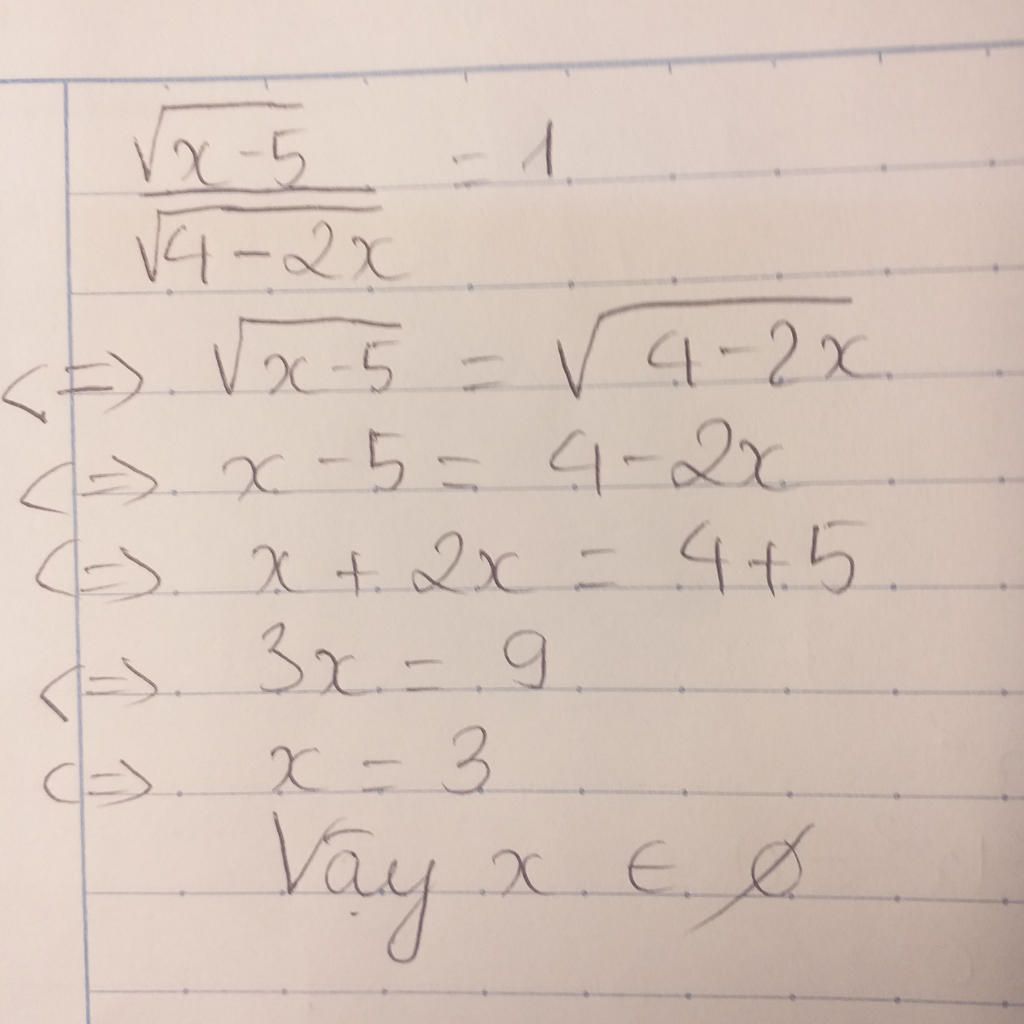 √(x-5) / √(4-2x) = 1
<=> √(x-5) = √(4-2x)
<=> x-5 = 4-2x
<=> x + 2x = 4+5
<=> 3x = 9
<=> x = 3
Vậy x ∈ ∅